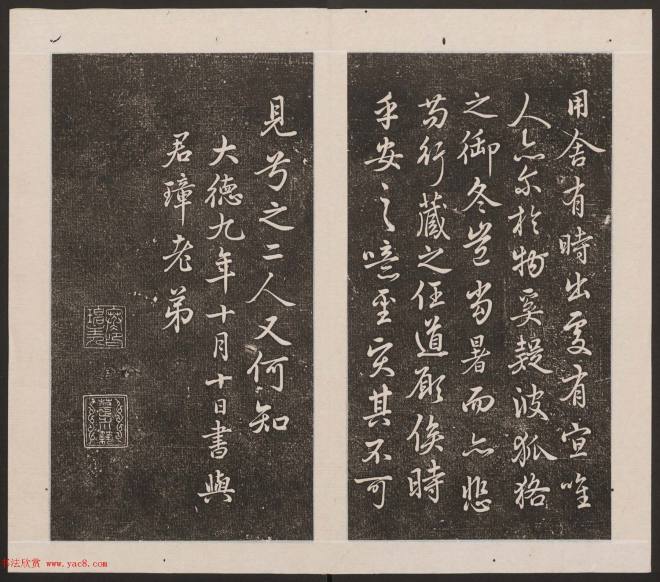 用舍有時出處有宜唯
人亦尔於物奚疑彼狐狢
之御冬豈當暑而亦悲
苟行藏之任道願俟時
乎安之噫聖其不可
見兮之二人又何知
大德九年十月十日書與
君璋老弟
书法欣赏 www.yac8.com